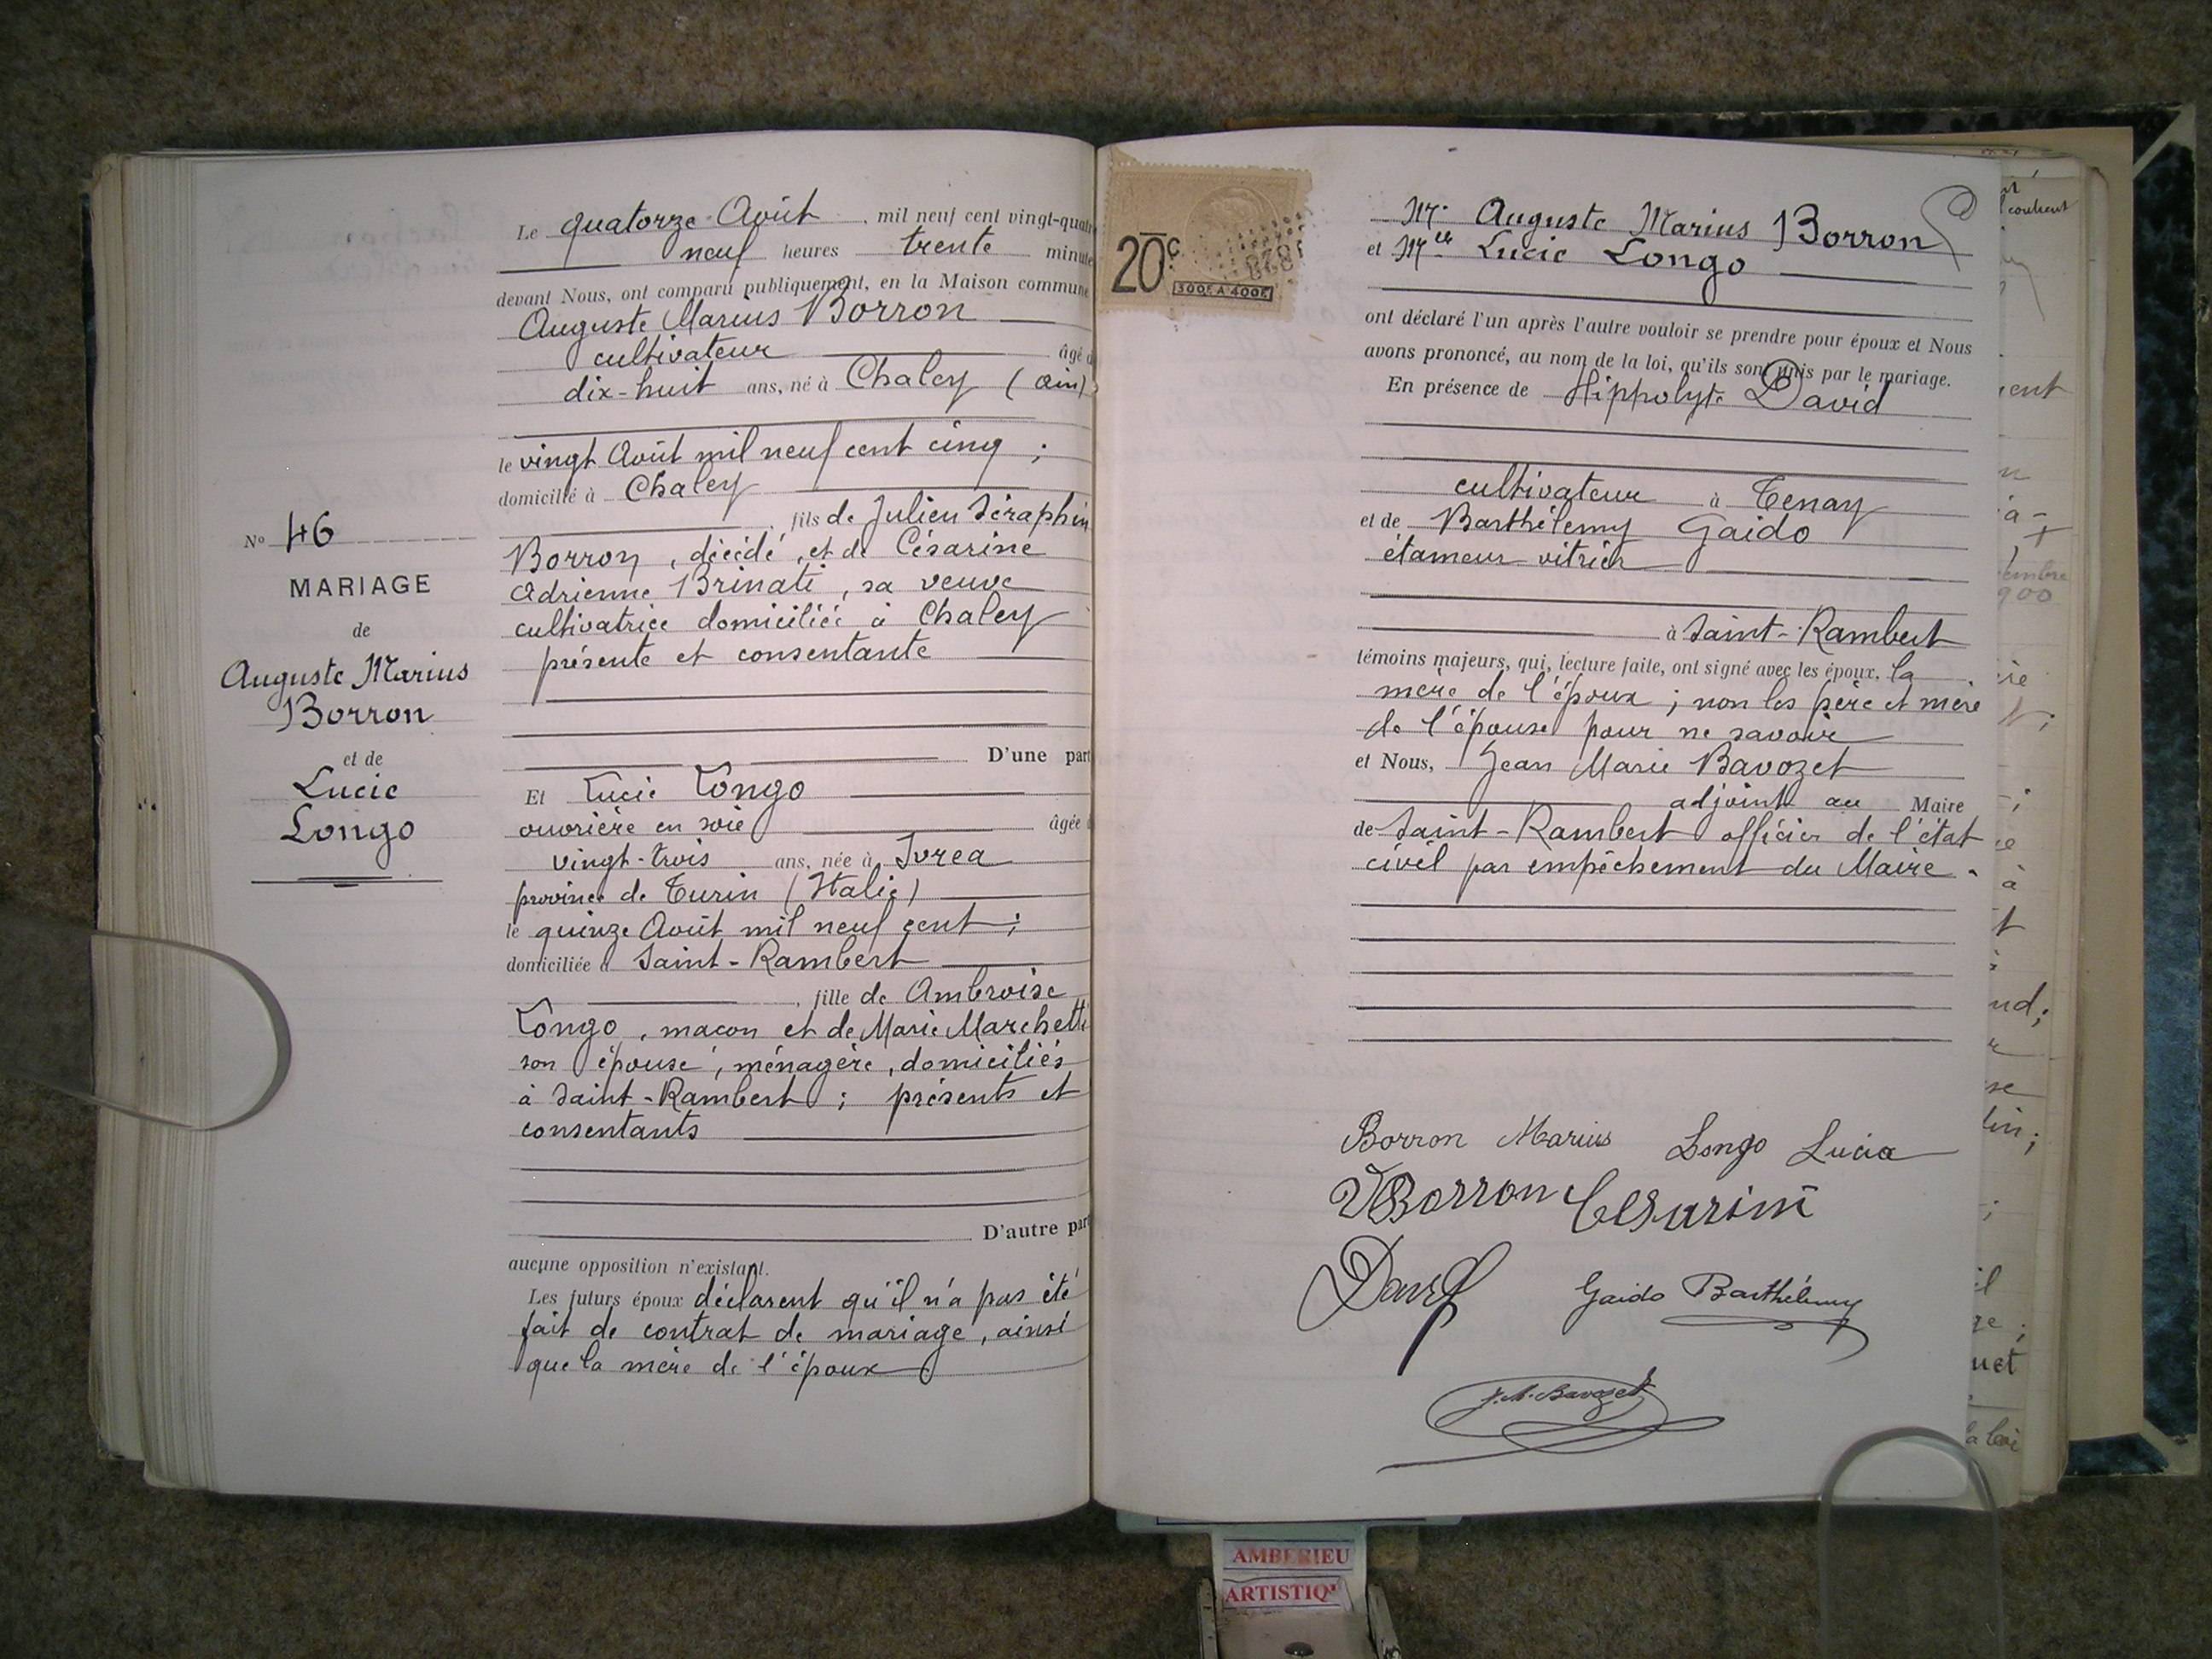 Le quatorze Août, mil neuf cent vingt-quatre
neuf heures trente minutes
devant Nous, ont comparu publiquement, en la Maison commune
Auguste Marius Borron
cultivateur âgé d
dix-huit ans, né à Chaley (Ain)
le vingt Août mil neuf cent cinq ;
domicilié à Chaley
, fils de Julien Séraphin
Borron, décédé, et de Césarine
Adrienne Brinati, sa veuve
cultivatrice domiciliée à Chaley
présente et consentante
D'une part
Et Lucie Longo
ouvrière en soie âgée d
vingt-trois ans, née à Ivrea
province de Turin (Italie)
le quinze Août mil neuf cent ;
domiciliée à Saint-Rambert
, fille de Ambroise
Longo, maçon et de Marie Marchetti
son épouse, ménagère, domiciliés
à Saint-Rambert ; présents et
consentants
D'autre part
aucune opposition n'existant.
Les futurs époux déclarent qu'il n'a pas été
fait de contrat de mariage, ainsi
que la mère de l'époux
No 46
MARIAGE
de
Auguste Marius
Borron
et de
Lucie
Longo
20c
300F A 400F
Mr. Auguste Marius Borron
et Melle Lucie Longo
ont déclaré l'un après l'autre vouloir se prendre pour époux et Nous
avons prononcé, au nom de la loi, qu'ils sont unis par le mariage.
En présence de Hippolyte David
cultivateur à Tenay
et de Barthélemy Gaido
étameur vitrier
à Saint-Rambert
témoins majeurs, qui, lecture faite, ont signé avec les époux, la
mère de l'époux ; non les père et mère
de l'épouse pour ne savoir
et Nous, Jean Marie Bavozet
adjoint au Maire
de Saint-Rambert officier de l'état
civil par empêchement du Maire.
Borron Marius Longo Lucia
Borron Cesarine
David Gaido Barthélemy
J. M. Bavozet
AMBERIEU
ARTISTIQ